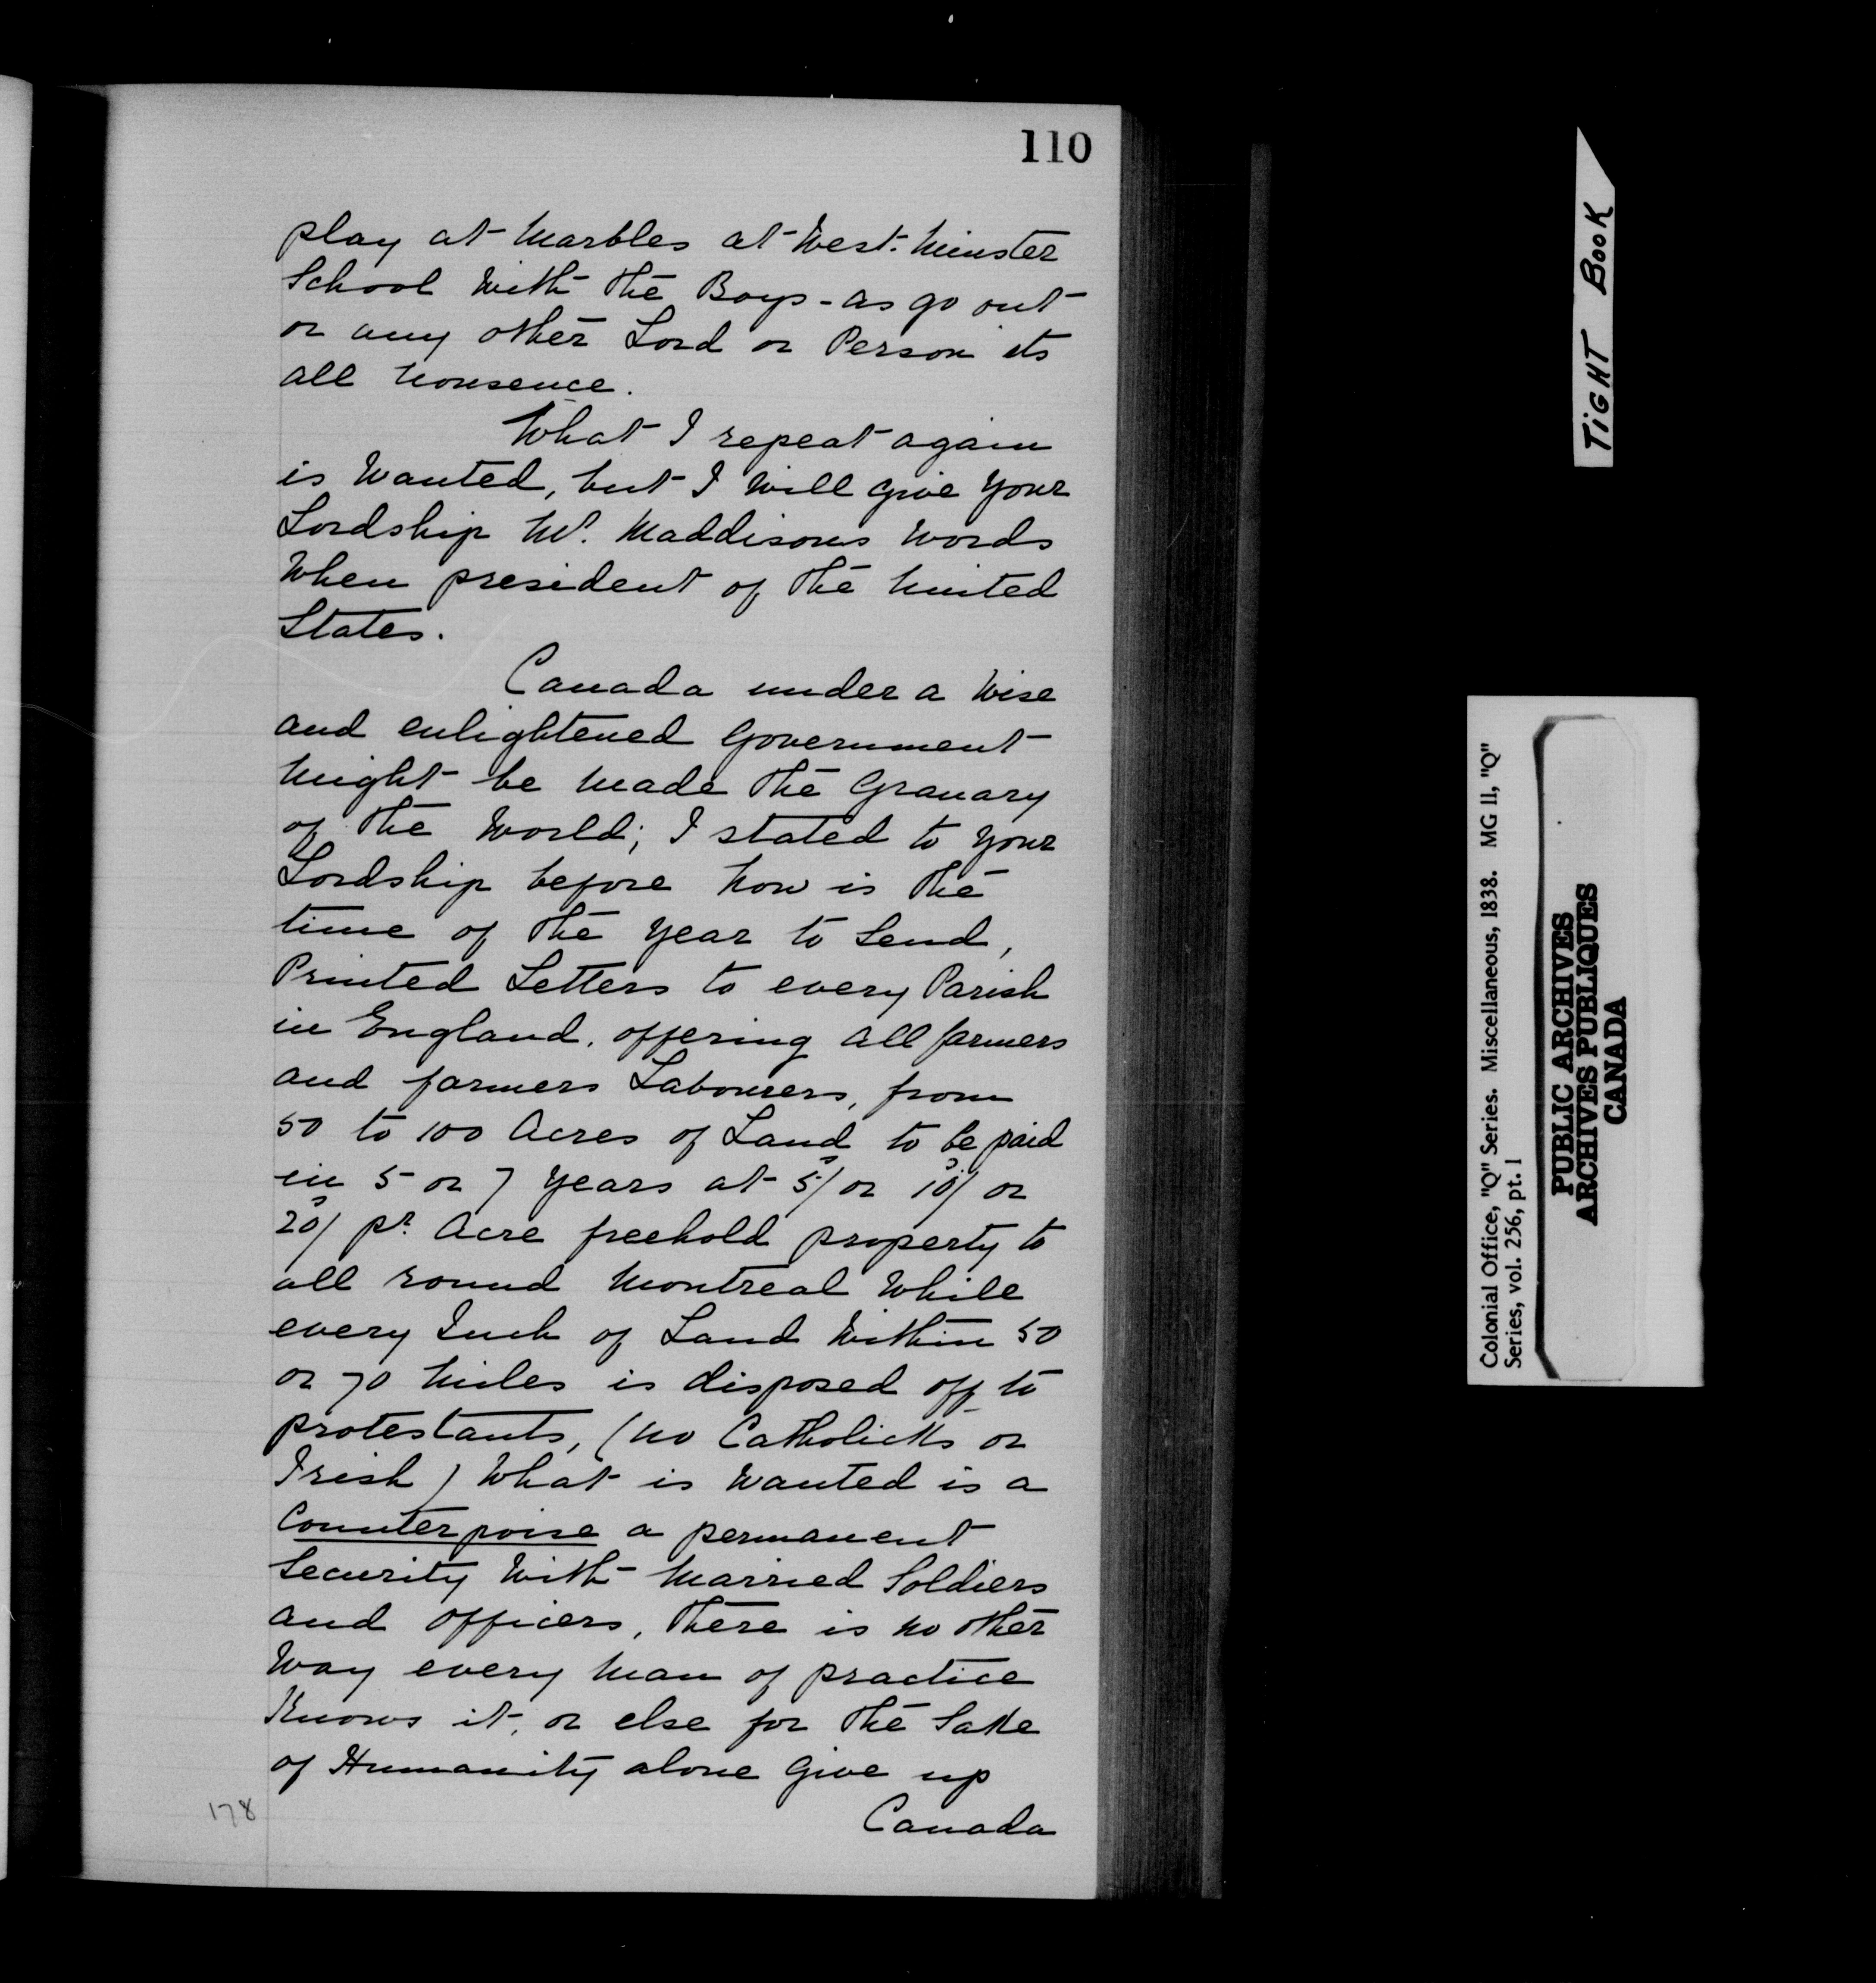 110
play at Marbles at West-Minster
School with the Boys - as go out
or any other Lord or Person its
all nonsence.
What I repeat again
is wanted, but I will give your
Lordship Mr. Maddisons words
when president of the United
States.
Canada under a wise
and enlightened Government
might be made the Granary
of the World; I stated to your
Lordship before now is the
time of the year to send,
Printed Letters to every Parish
in England, offering all farmers
and farmers Labourers, from
50 to 100 Acres of Land to be paid
in 5 or 7 years at 5s/ or 10s/ or
20s/ pr. Acre freehold property to
all round Montreal while
every Inch of Land within 50
or 70 Miles is disposed off to
protestants, (no Catholicks or
Irish) What is wanted is a
Counterpoise a permanent
Security with Married Soldiers
and officers, there is no other
way every man of practice
Knows it, or else for the sake
of Humanity alone give up
Canada
178
TiGHT BooK
Colonial Office, "Q" Series. Miscellaneous, 1838. MG 11, "Q"
Series, vol. 256, pt. 1
PUBLIC ARCHIVES
ARCHIVES PUBLIQUES
CANADA